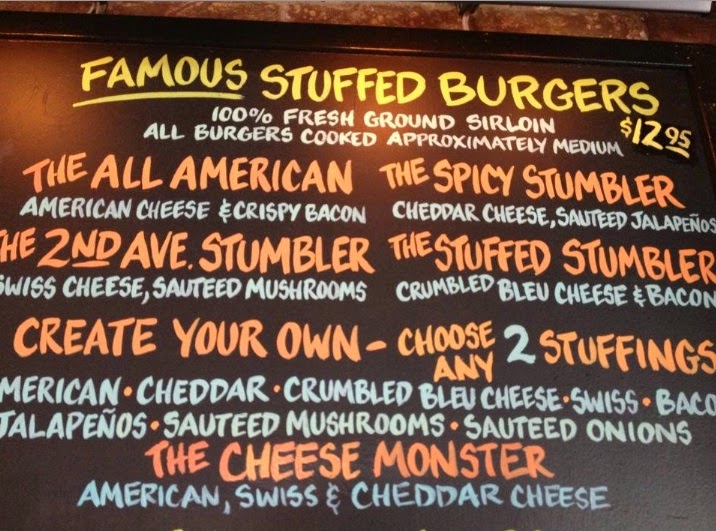 FAMOUS STUFFED BURGERS
100% FRESH GROUND SIRLOIN
ALL BURGERS COOKED APPROXIMATELY MEDIUM $12.95
THE ALL AMERICAN
AMERICAN CHEESE & CRISPY BACON
THE SPICY STUMBLER
CHEDDAR CHEESE, SAUTEED JALAPEÑOS
THE 2ND AVE. STUMBLER
SWISS CHEESE, SAUTEED MUSHROOMS
THE STUFFED STUMBLER
CRUMBLED BLEU CHEESE & BACON
CREATE YOUR OWN - CHOOSE ANY 2 STUFFINGS
MERICAN • CHEDDAR • CRUMBLED BLEU CHEESE • SWISS • BACO
JALAPEÑOS • SAUTEED MUSHROOMS • SAUTEED ONIONS
THE CHEESE MONSTER
AMERICAN, SWISS & CHEDDAR CHEESE